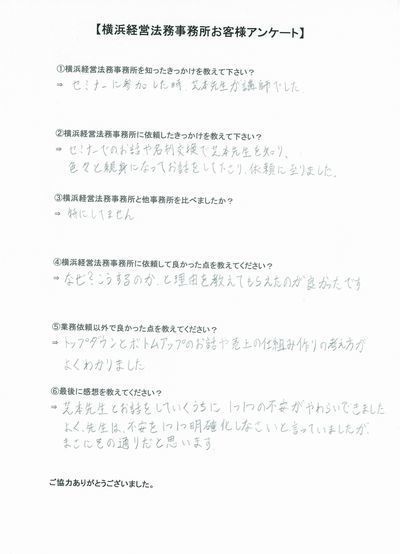 【横浜経営法務事務所お客様アンケート】
①横浜経営法務事務所を知ったきっかけを教えて下さい？
⇒ セミナーに参加した時、芝本先生が講師でした
②横浜経営法務事務所に依頼したきっかけを教えて下さい？
⇒ セミナーでのお話や名刺交換で芝本先生を知り、
色々と親身になってお話をして下さり、依頼に至りました。
③横浜経営法務事務所と他事務所を比べましたか？
⇒ 特にしてません
④横浜経営法務事務所に依頼して良かった点を教えてください？
⇒ なぜ？こうするのか、と理由を教えてもらえたのが良かったです
⑤業務依頼以外で良かった点を教えてください？
⇒ トップダウンとボトムアップのお話や 土の仕組み作りの考え方が
よくわかりました
⑥最後に感想を教えてください？
⇒ 芝本先生とお話をしていくうちに、1つ1つの不安がやわらいできました
よく、先生は、不安を1つ1つ明確化しなさいと言っていましたが、
まさにその通りだと思います
ご協力ありがとうございました。